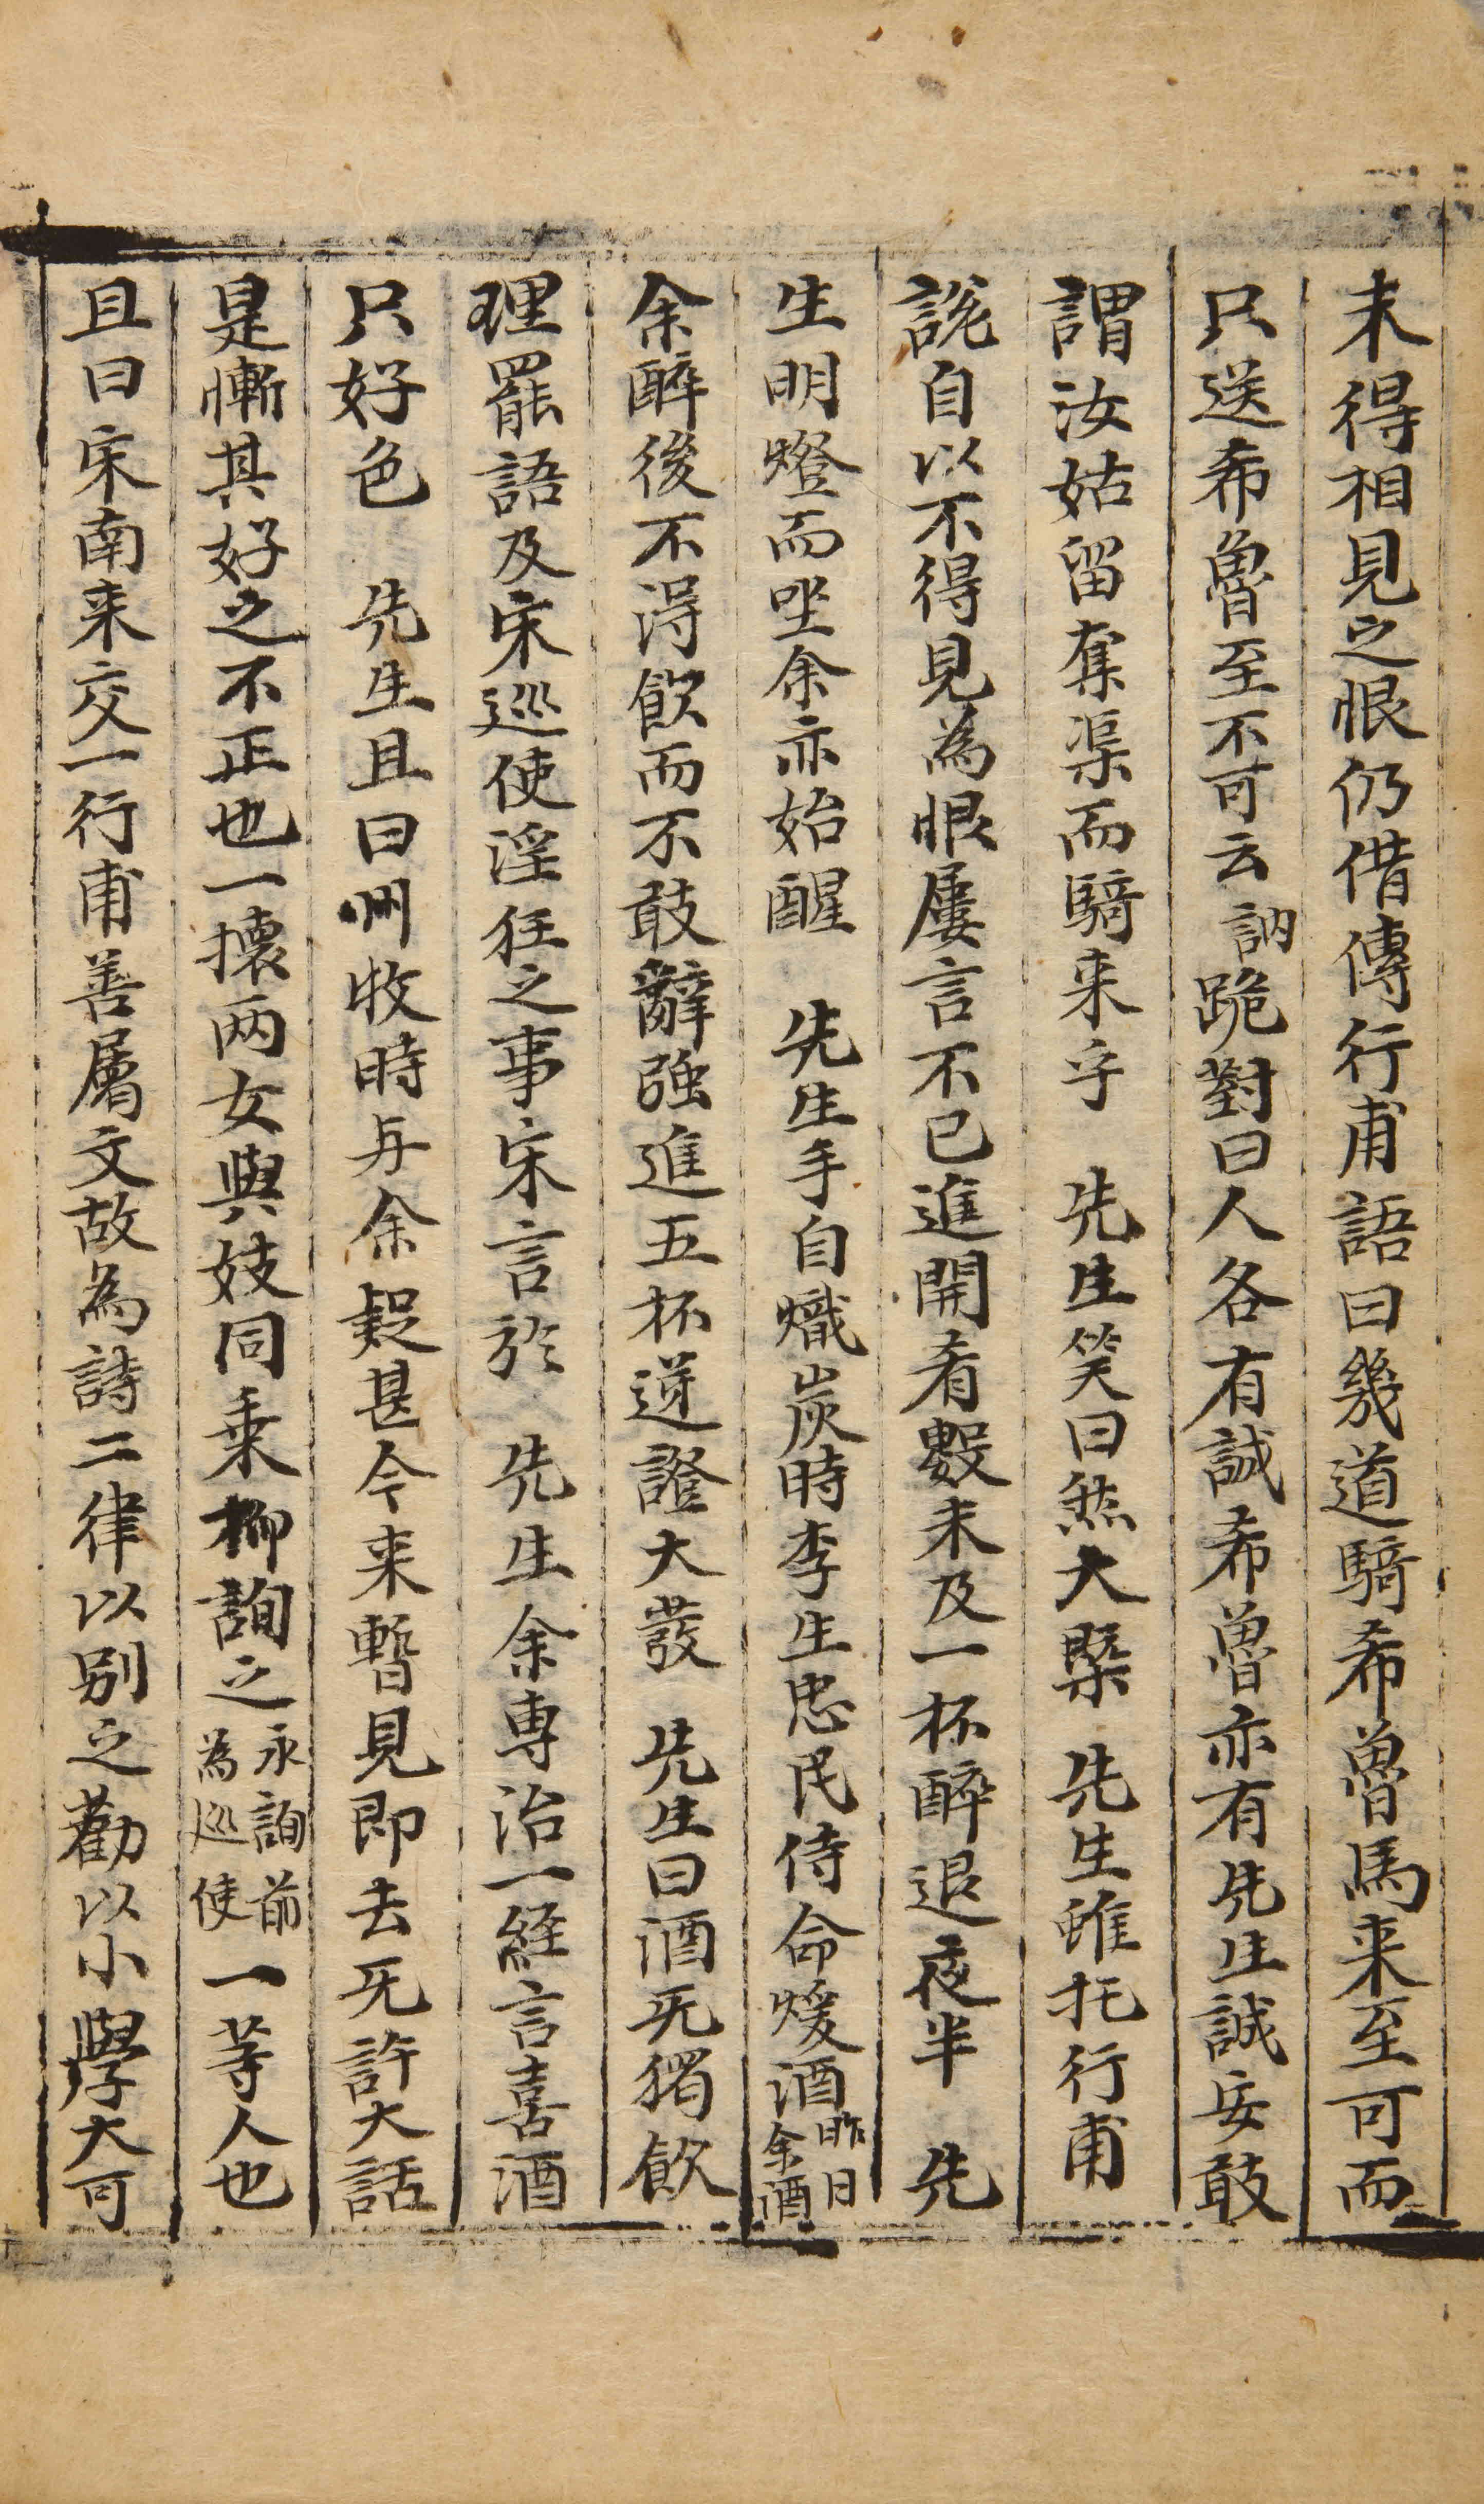 未得相見之恨仍借傳行甫語曰幾道騎希魯馬来至可而
只送希魯至不可云訥跪對曰人各有誠希魯亦有先生誠妄敢
謂汝姑留奪渠而騎来乎　先生笑曰然大槩　先生雖托行甫
說自以不得見為恨屢言不已進開肴數未及一杯醉退夜半　先
生明燈而坐余亦始醒　先生手自熾炭時李生忠民侍命煖酒昨日余酒
余醉後不得飮而不敢辭強進五杯逆證大發　先生曰酒旡獨飮
理罷語及宋巡使淫狂之事宋言於　先生余専治一經言喜酒
只好色　先生且曰州牧時与余疑甚今来暫見即去旡許大話
是慚其好之不正也一壞两女與妓同乗栁詢之永詢前為巡使一等人也
且曰宋南来交一行甫善屬文故為詩二律以别之勸以小學大可